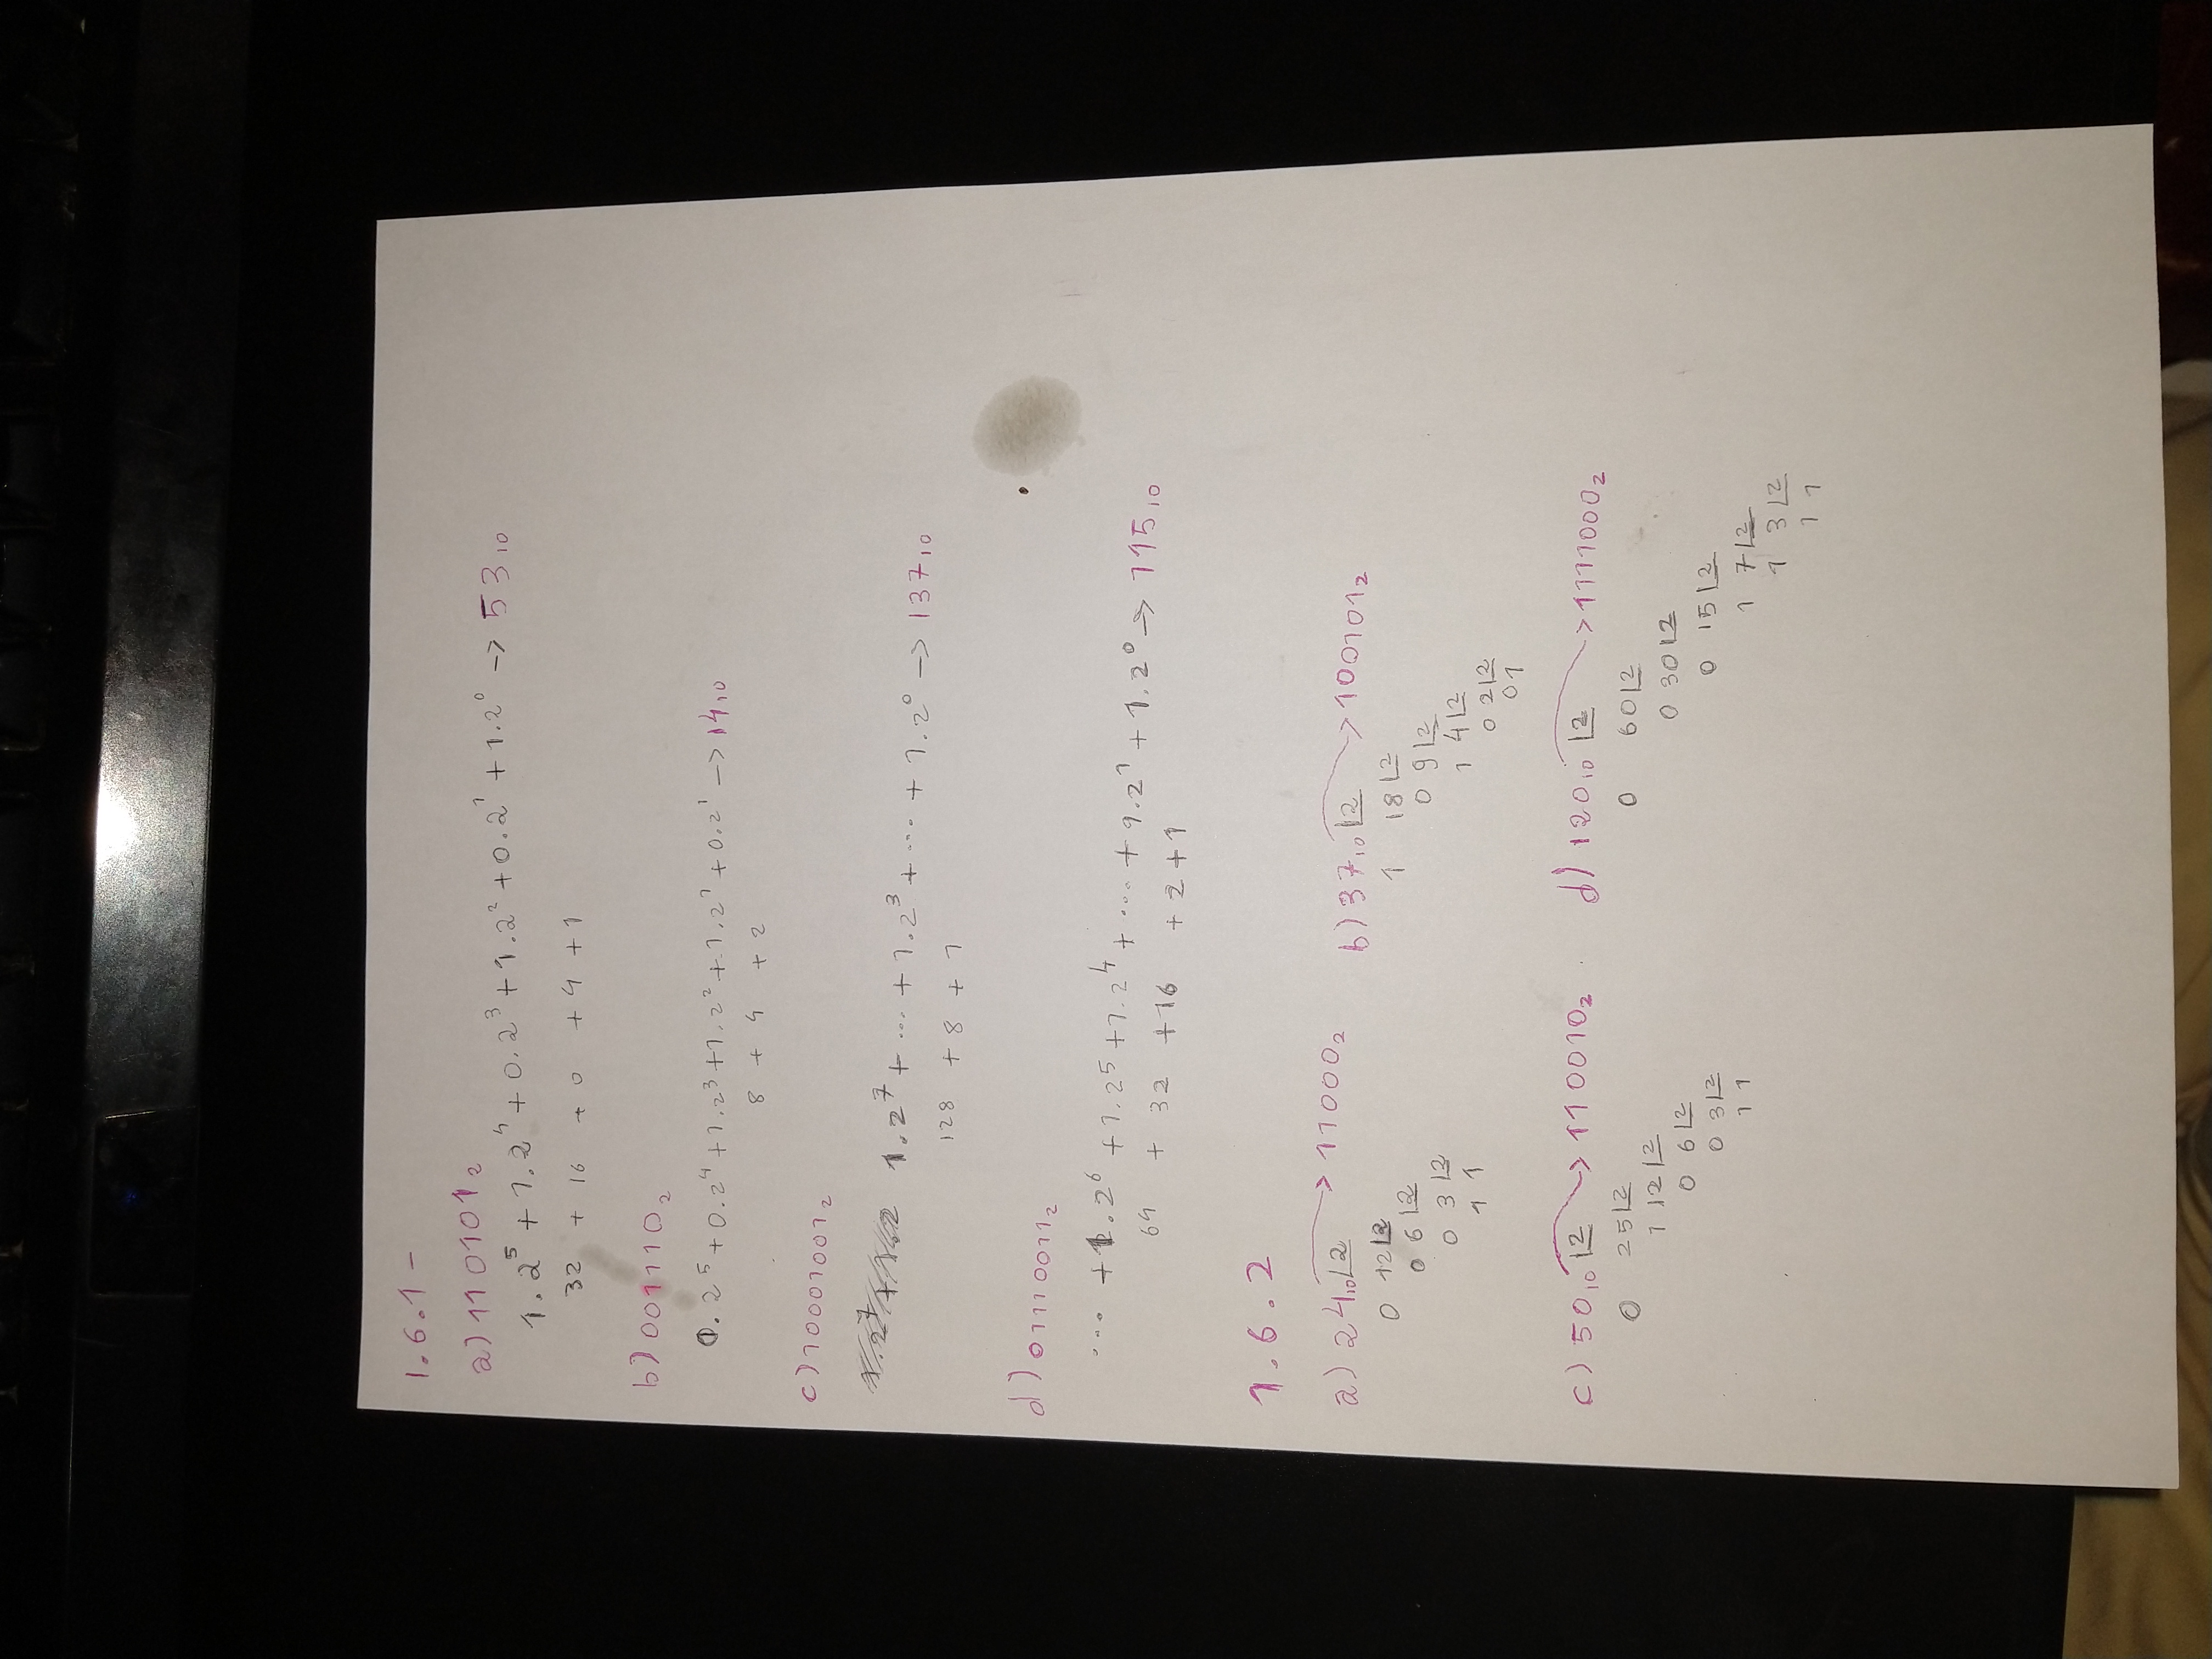 1.6.1 -
a) 110101₂
1.2⁵ + 1.2⁴ + 0.2³ + 1.2² + 0.2¹ + 1.2⁰ -> 53₁₀
32 + 16 + 0 + 4 + 1
b) 001110₂
0.2⁵ + 0.2⁴ + 1.2³ + 1.2² + 1.2¹ + 0.2¹ -> 14₁₀
8 + 4 + 2
c) 10001001₂
1.2⁷ + ... + 1.2³ + ... + 1.2⁰ -> 137₁₀
128 + 8 + 1
d) 01110011₂
... + 1.2⁶ + 1.2⁵ + 1.2⁴ + ... + 1.2¹ + 1.2⁰ -> 115₁₀
64 + 32 + 16 + 2 + 1
1.6.2
a) 24₁₀ |2 -> 11000₂
0 12 |2
0 6 |2
0 3 |2
1 1
b) 37₁₀ |2 -> 100101₂
1 18 |2
0 9 |2
1 4 |2
0 2 |2
0 1
c) 50₁₀ |2 -> 110010₂
0 25 |2
1 12 |2
0 6 |2
0 3 |2
1 1
d) 120₁₀ |2 -> 1111000₂
0 60 |2
0 30 |2
0 15 |2
1 7 |2
1 3 |2
1 1